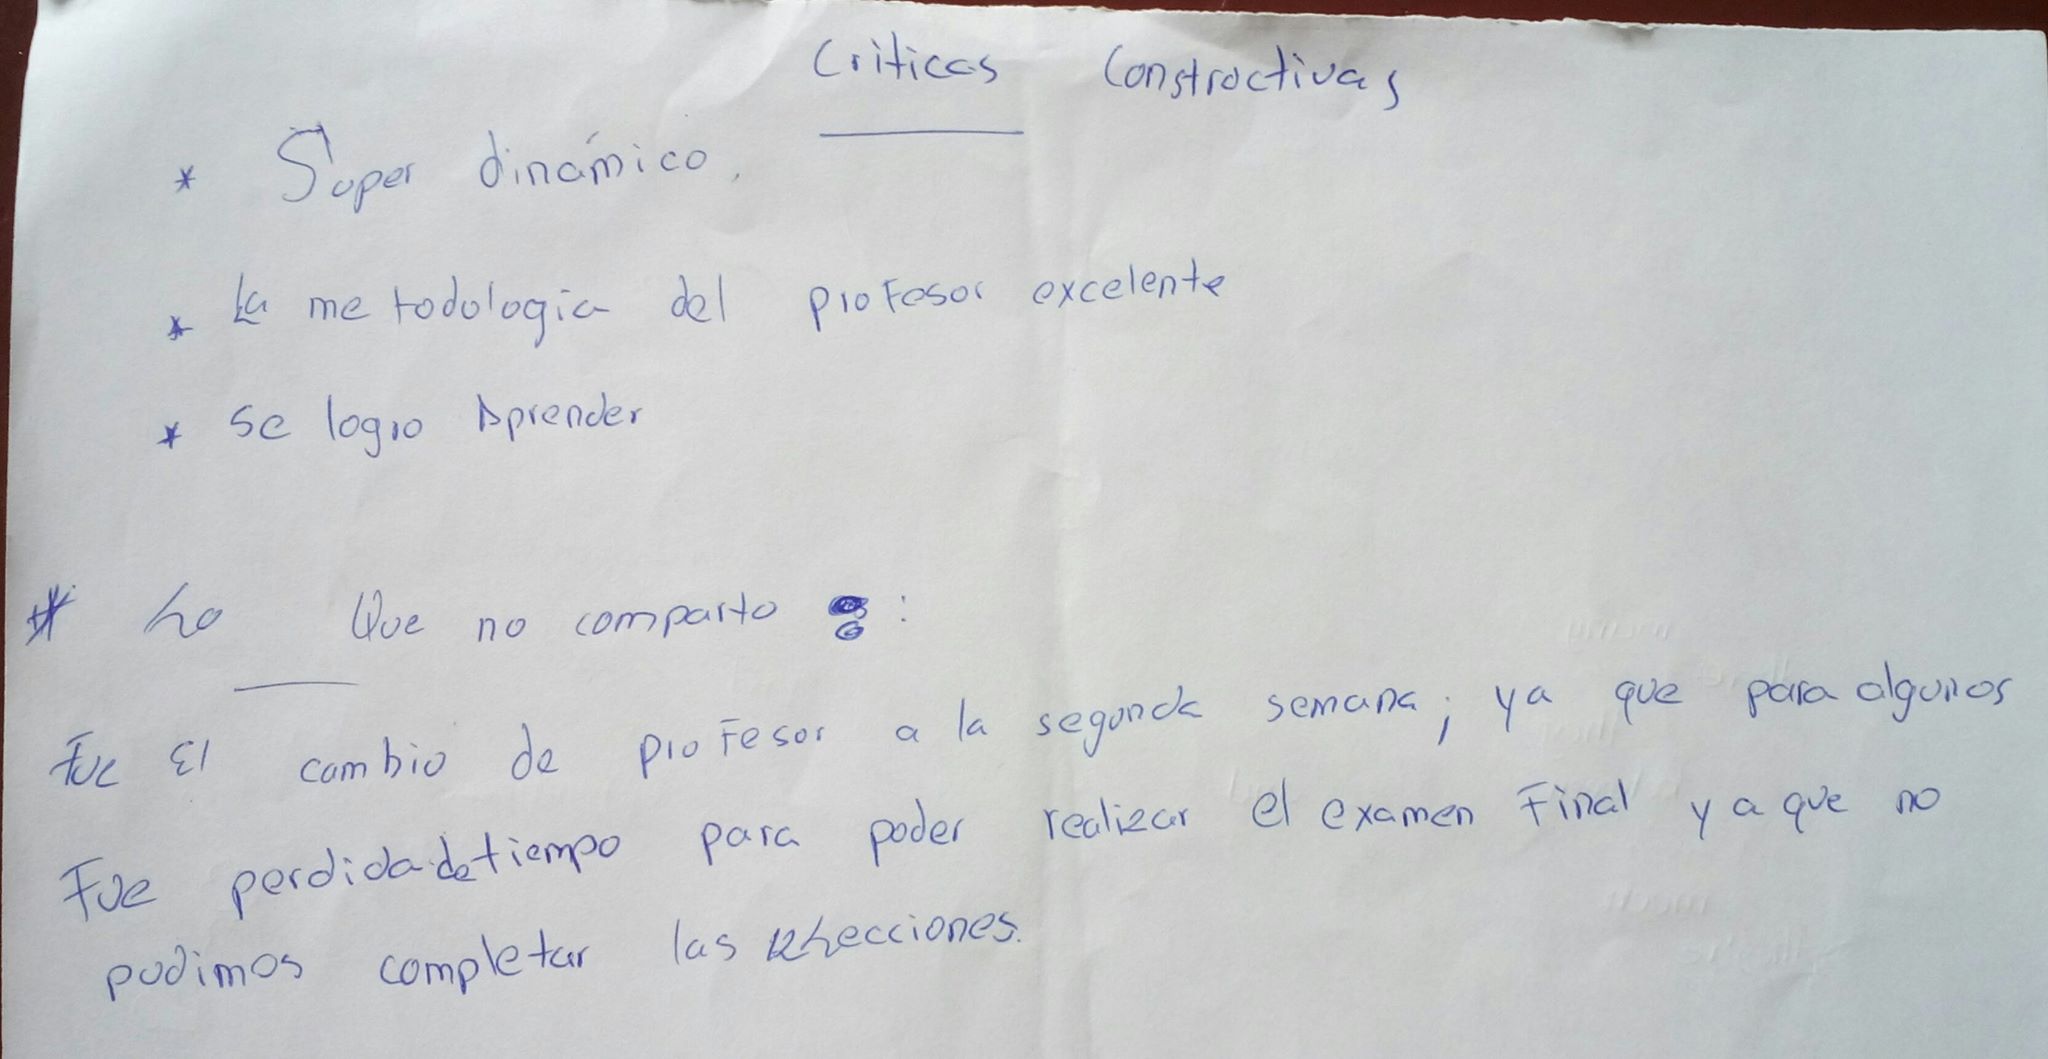 Criticas Constructivas
* Super dinámico.
* La metodologia del profesor excelente
* Se logro Aprender
* Lo Que no comparto :
Fue El cambio de profesor a la segunda semana; ya que para algunos
Fue perdida de tiempo para poder realizar el examen Final ya que no
pudimos completar las Lecciones.